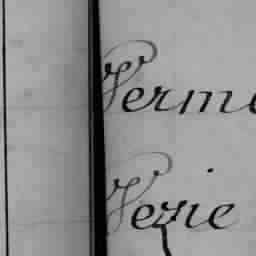 Verme
Vezie